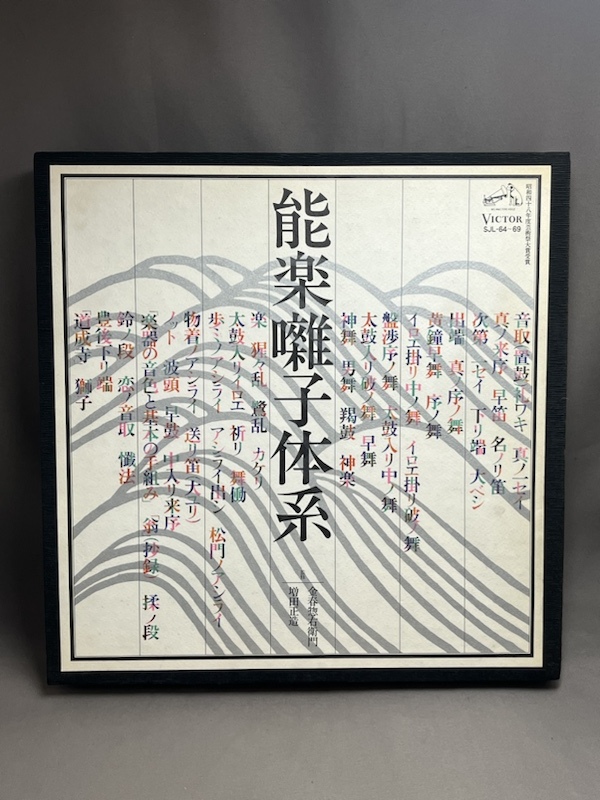 昭和四十八年度芸術祭大賞受賞
VICTOR
SJL-64~69
音取置鼓 礼ワキ 真ノ一セイ
真ノ来序 早笛 名ノリ笛
次第 一セイ 下リ端 大ベシ
出端 真ノ序ノ舞
黄鐘早舞 序ノ舞
イロエ掛リ中ノ舞 イロエ掛リ破ノ舞
盤渉序ノ舞 太鼓入リ中ノ舞
太鼓入リ破ノ舞 早舞
神舞 男舞 羯鼓 神楽
能楽囃子体系
監修
金春惣右衛門
増田正造
楽 猩々乱 鷺乱 カケリ
太鼓入リイロエ 祈リ 舞働
歩ミノアシライ アシライ出シ 松門ノアシライ
物着ノアシライ 送リ笛(大ニリ)
ノット 波頭 早鼓 中入リ来序
楽器の音色と基本の手組み 「翁」(抄録) 揉ノ段
鈴ノ段 恋ノ音取 懺法
豊後下リ端
「道成寺」 獅子